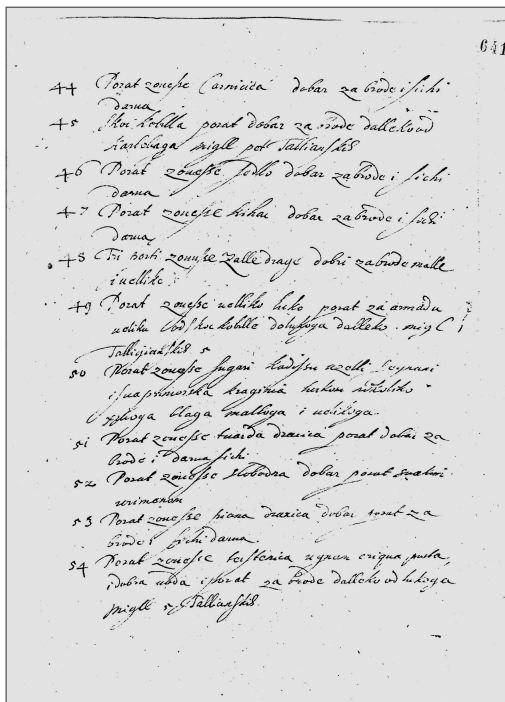 641
44 Porat zouesse Carnicita dobar za brode i sichi
darua
45 Skoi kobilla porat dobar za brode dalleko od
Karlobaga migll pet Tallianskih
46 Porat zouesse sedlo dobar za brode i sichi
darua
47 Porat zouesse kihac dobar za brode i sichi
darua
48 Tri porti zouusse zalle drage dobri za brode malle
i uellike
49 Porat zouesse uelliko luko porat za armadu
ueliku od skoi kobille dolukoga dalleko migl
Talligianskih 5
50 Porat zouesse sugari kadisu uzelli Segnani
i sua primorska kragina turkom nikoliko
xiuoga blaga malloga i uelikoga
51 Porat zouesse tuarda draxica porat dobar za
brode i darua sichi
52 Porat zouesse slobodna dobar porat suakim
urimenom
53 Porat zouesse piana draxica dobar porat za
brode i sichi darua
54 Porat zouesse cristenica ugnem criqua pusta
i dobra uoda i porat za brode dalleko od lukoga
miglle 5 Tallianskih